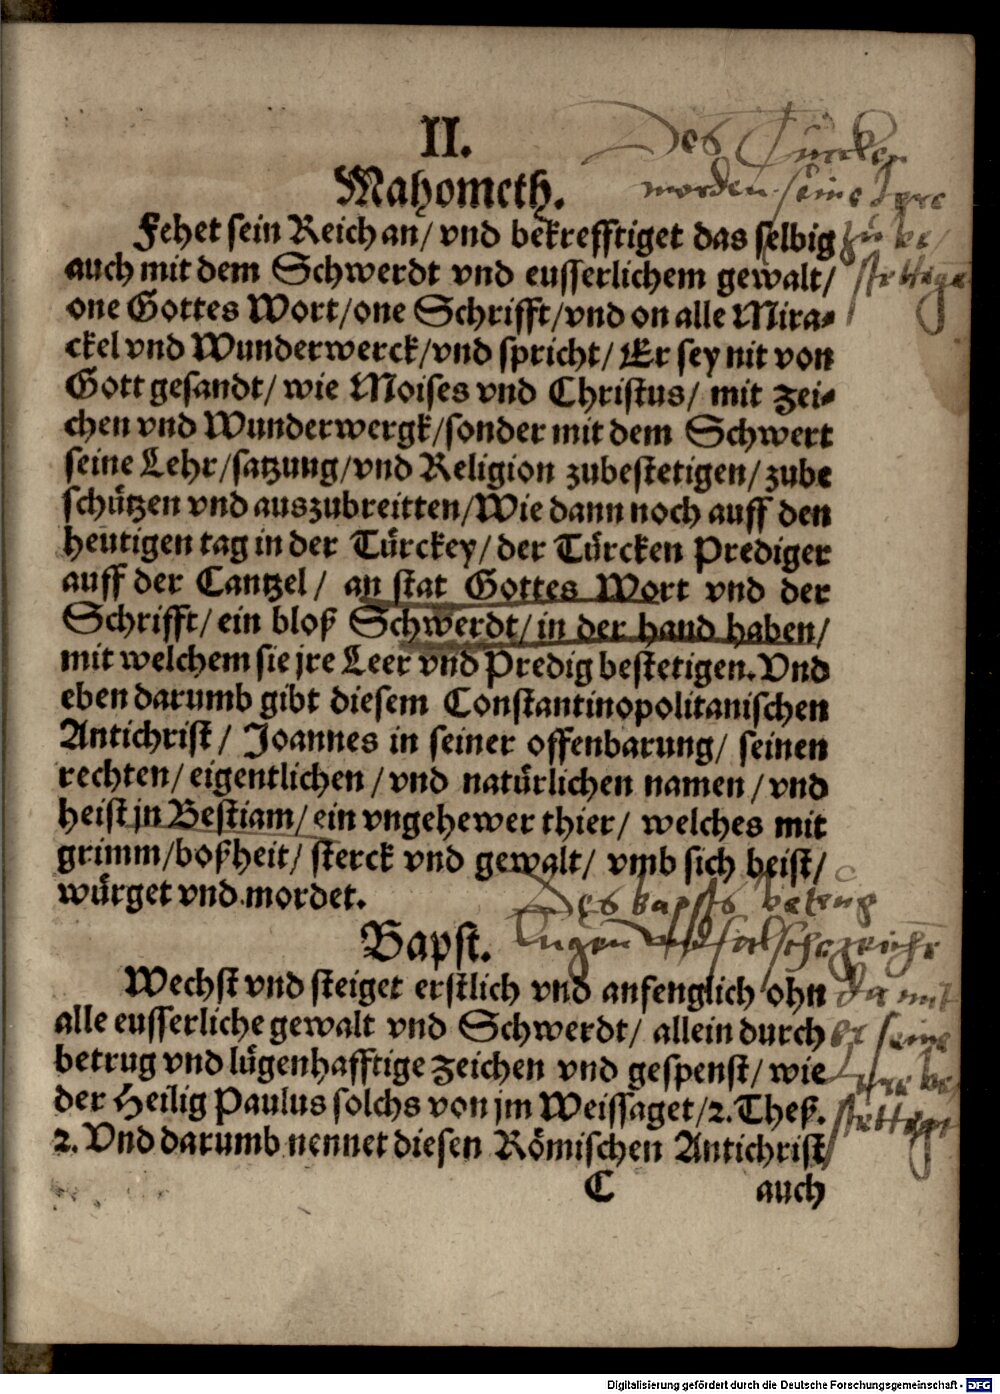 II.
Des Türcken
morden seine Lere
zu be/
stettigen
Mahometh.
Fehet sein Reich an/ vnd bekrefftiget das selbig
auch mit dem Schwerdt vnd eusserlichem gewalt/
one Gottes Wort/one Schrifft/vnd on alle Mira⸗
ckel vnd Wunderwerck/vnd spricht/ Er sey nit von
Gott gesandt/ wie Moises vnd Christus/ mit zei⸗
chen vnd Wunderwergk/sonder mit dem Schwert
seine Lehr/satzung/vnd Religion zubestetigen/zube
schützen vnd auszubreitten/Wie dann noch auff den
heutigen tag in der Türckey/ der Türcken Prediger
auff der Cantzel/ an stat Gottes Wort vnd der
Schrifft/ ein bloß Schwerdt/ in der hand haben/
mit welchem sie jre Leer vnd Predig bestetigen. Vnd
eben darumb gibt diesem Constantinopolitanischen
Antichrist/ Joannes in seiner offenbarung/ seinen
rechten/ eigentlichen/ vnd natürlichen namen/ vnd
heist jn Bestiam/ ein vngehewer thier/ welches mit
grimm/boßheit/ sterck vnd gewalt/ vmb sich beist/
würget vnd mordet.
Des bapsts betrug
lugen vnd falsche zeichen
da mit
er seine
Lere be/
stettiget
Bapst.
Wechst vnd steiget erstlich vnd anfenglich ohn
alle eusserliche gewalt vnd Schwerdt/ allein durch
betrug vnd lügenhafftige zeichen vnd gespenst/ wie
der Heilig Paulus solchs von jm Weissaget/2. Theß.
2. Vnd darumb nennet diesen Römischen Antichrist
C auch
Digitalisierung gefördert durch die Deutsche Forschungsgemeinschaft - DFG